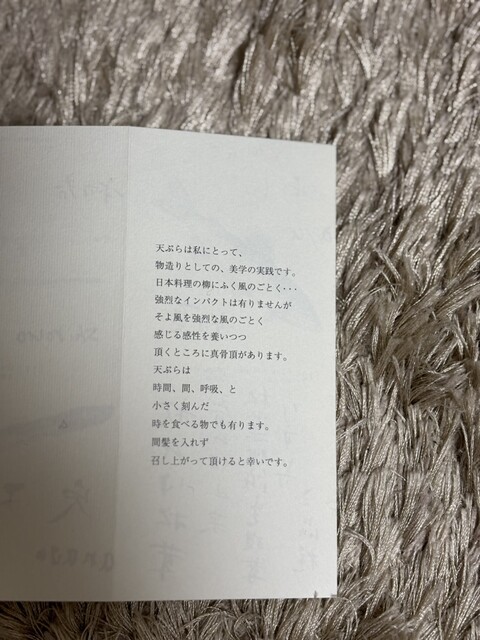 天ぷらは私にとって、
物造りとしての、美学の実践です。
日本料理の柳にふく風のごとく･･･
強烈なインパクトは有りませんが
そよ風を強烈な風のごとく
感じる感性を養いつつ
頂くところに真骨頂があります。
天ぷらは
時間、間、呼吸、と
小さく刻んだ
時を食べる物でも有ります。
間髪を入れず
召し上がって頂けると幸いです。